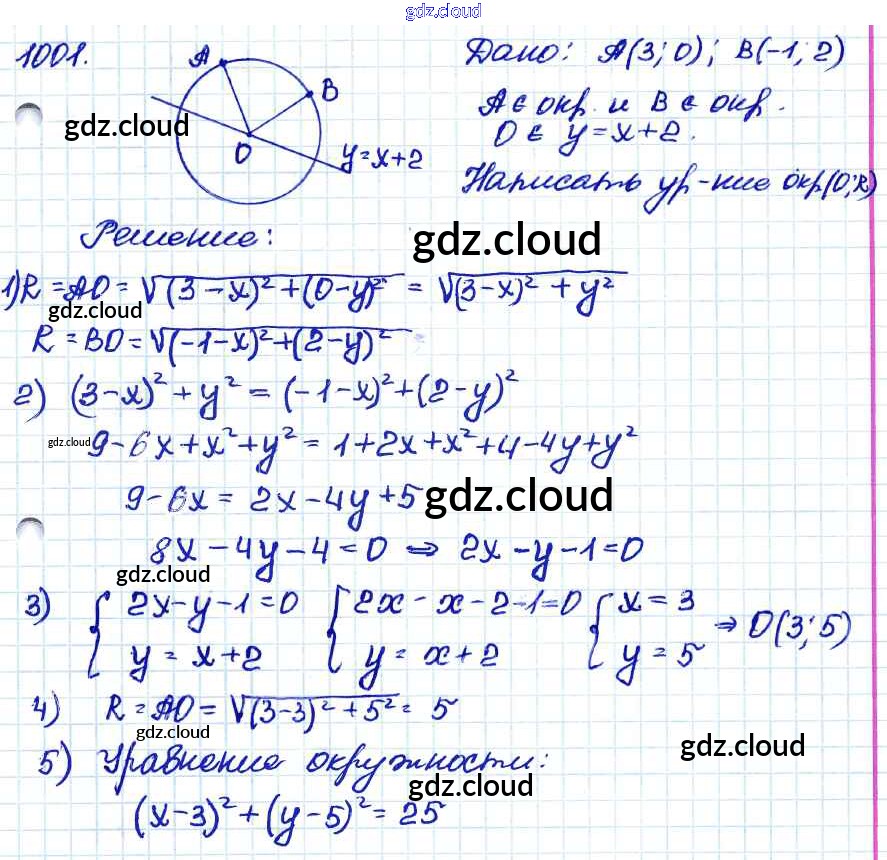 gdz.cloud
1001.
A
B
O
y=x+2
gdz.cloud
Дано: A(3; 0); B(-1; 2)
A ∈ окр. и B ∈ окр.
O ∈ y=x+2.
Написать ур-ние окр(O;R)
Решение:
gdz.cloud
1) R = AO = √(3-x)²+(0-y)² = √(3-x)² + y²
gdz.cloud
R = BO = √(-1-x)²+(2-y)²
2) (3-x)² + y² = (-1-x)²+(2-y)²
gdz.cloud 9-6x+x²+y² = 1+2x+x²+4-4y+y²
9-6x = 2x-4y+5 gdz.cloud
8x-4y-4=0 ⇒ 2x-y-1=0
gdz.cloud
3) { 2x-y-1=0 { 2x-x-2-1=0 { x=3
y = x+2 y = x+2 y = 5 ⇒ O(3; 5)
4) R = AO = √(3-3)² + 5² = 5
gdz.cloud
gdz.cloud
5) Уравнение окружности:
gdz.cloud
(x-3)²+(y-5)² = 25